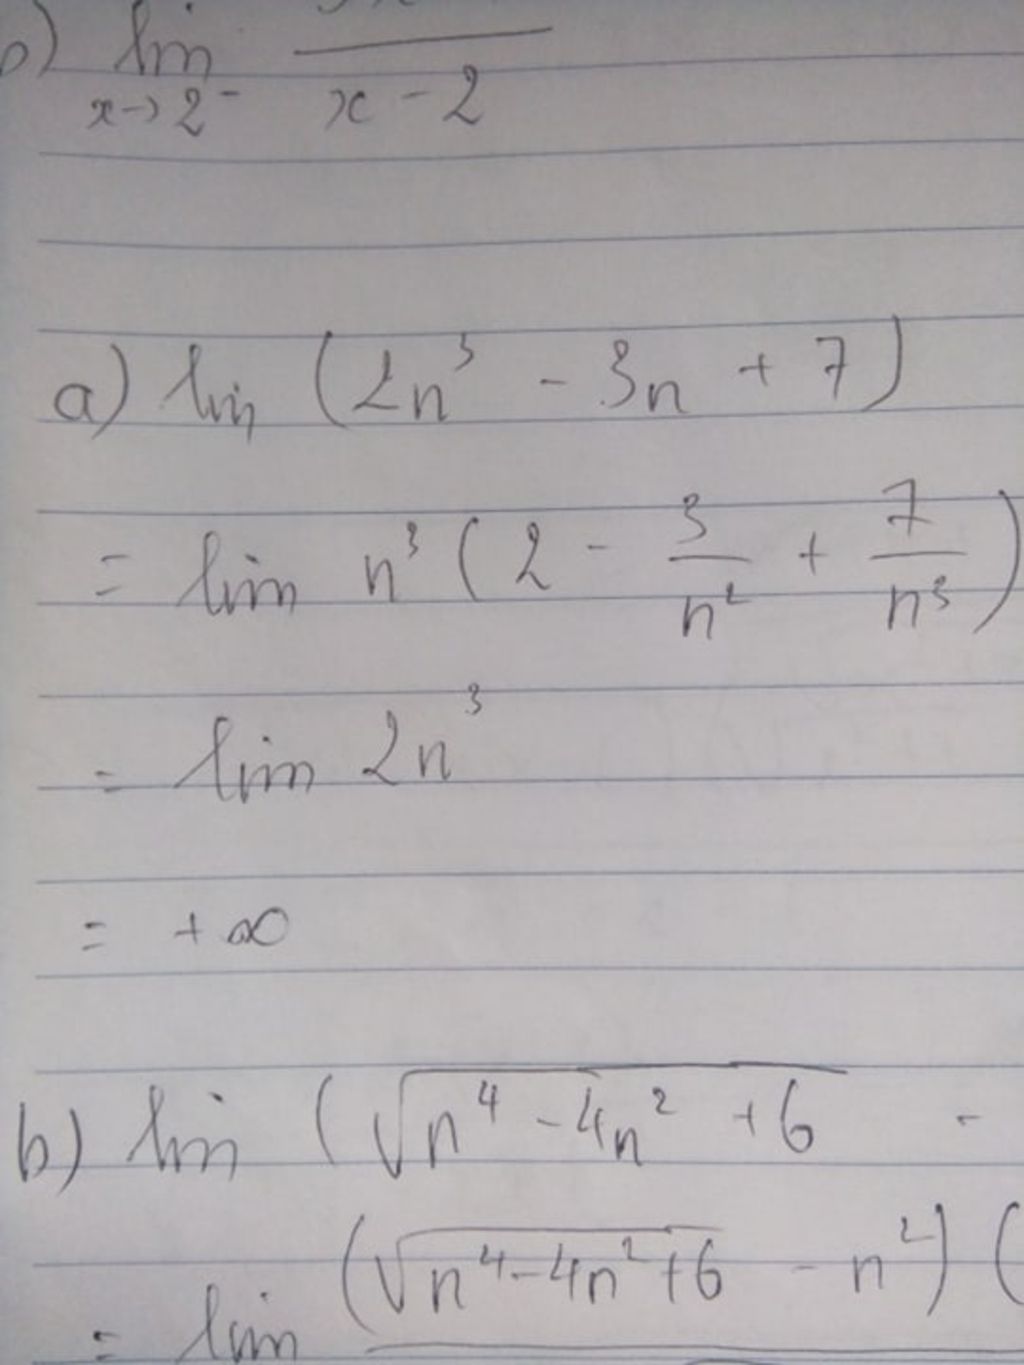 b) lim
x→2⁻ x - 2
a) lim (2n³ - 3n + 7)
= lim n³ (2 - 3/n² + 7/n³)
= lim 2n³
= +∞
b) lim (√(n⁴ - 4n² + 6) -
= lim (√(n⁴ - 4n² + 6) - n²) (